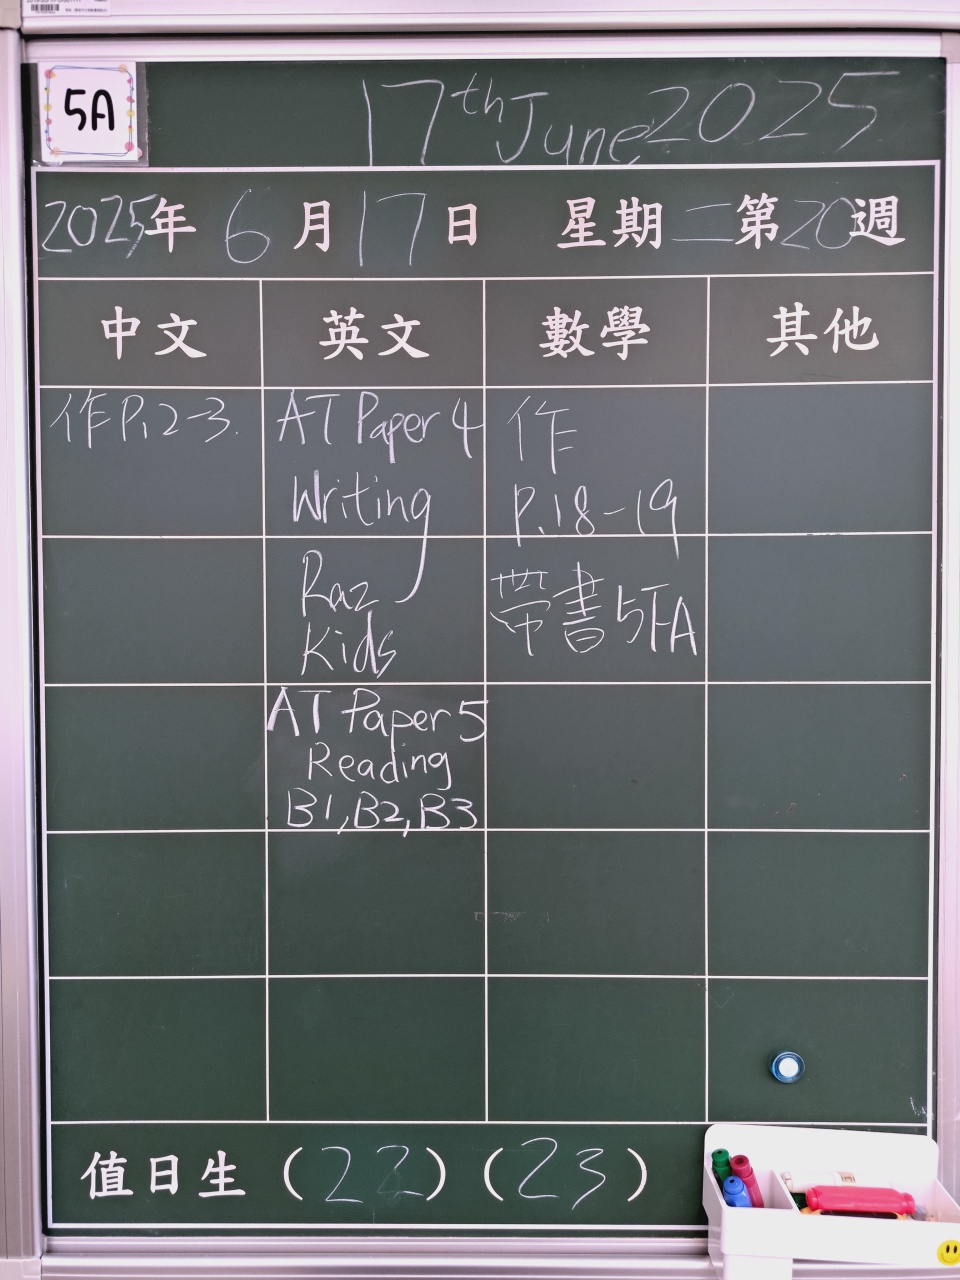 5A
17th June 2025
2025年 6月17日 星期二第20週
中文 英文 數學 其他
作P.2-3.
AT Paper 4
Writing
Raz
Kids
AT Paper 5
Reading
B1, B2, B3
作
P.18-19
帶書5下A
值日生 (22) (23)